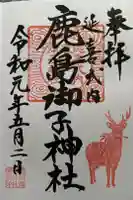 奉拝
延喜式内
鹿島御子神社
令和元年五月二日